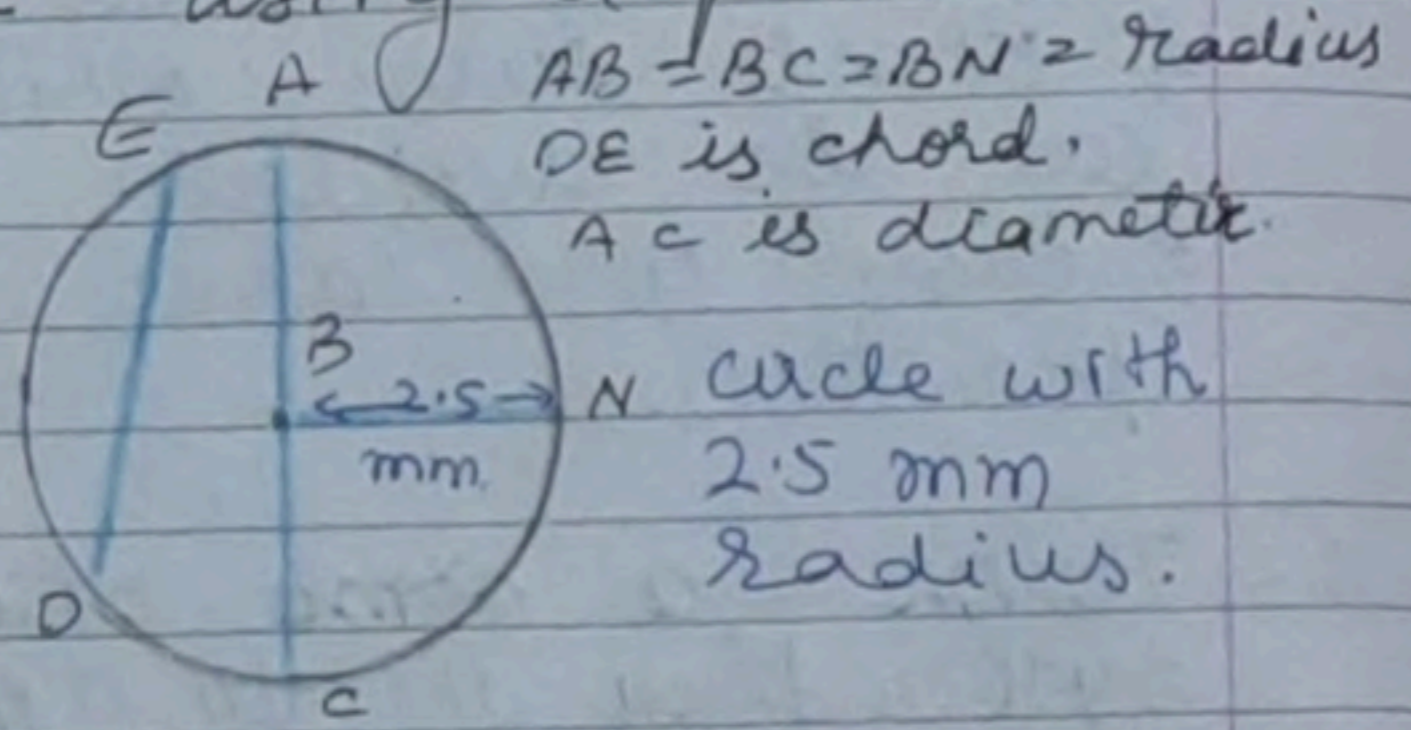 A
E
AB = BC = BN = radius
DE is chord.
AC is diameter.
B
←2.5→
mm
N
circle with
2.5 mm
radius.
D
C